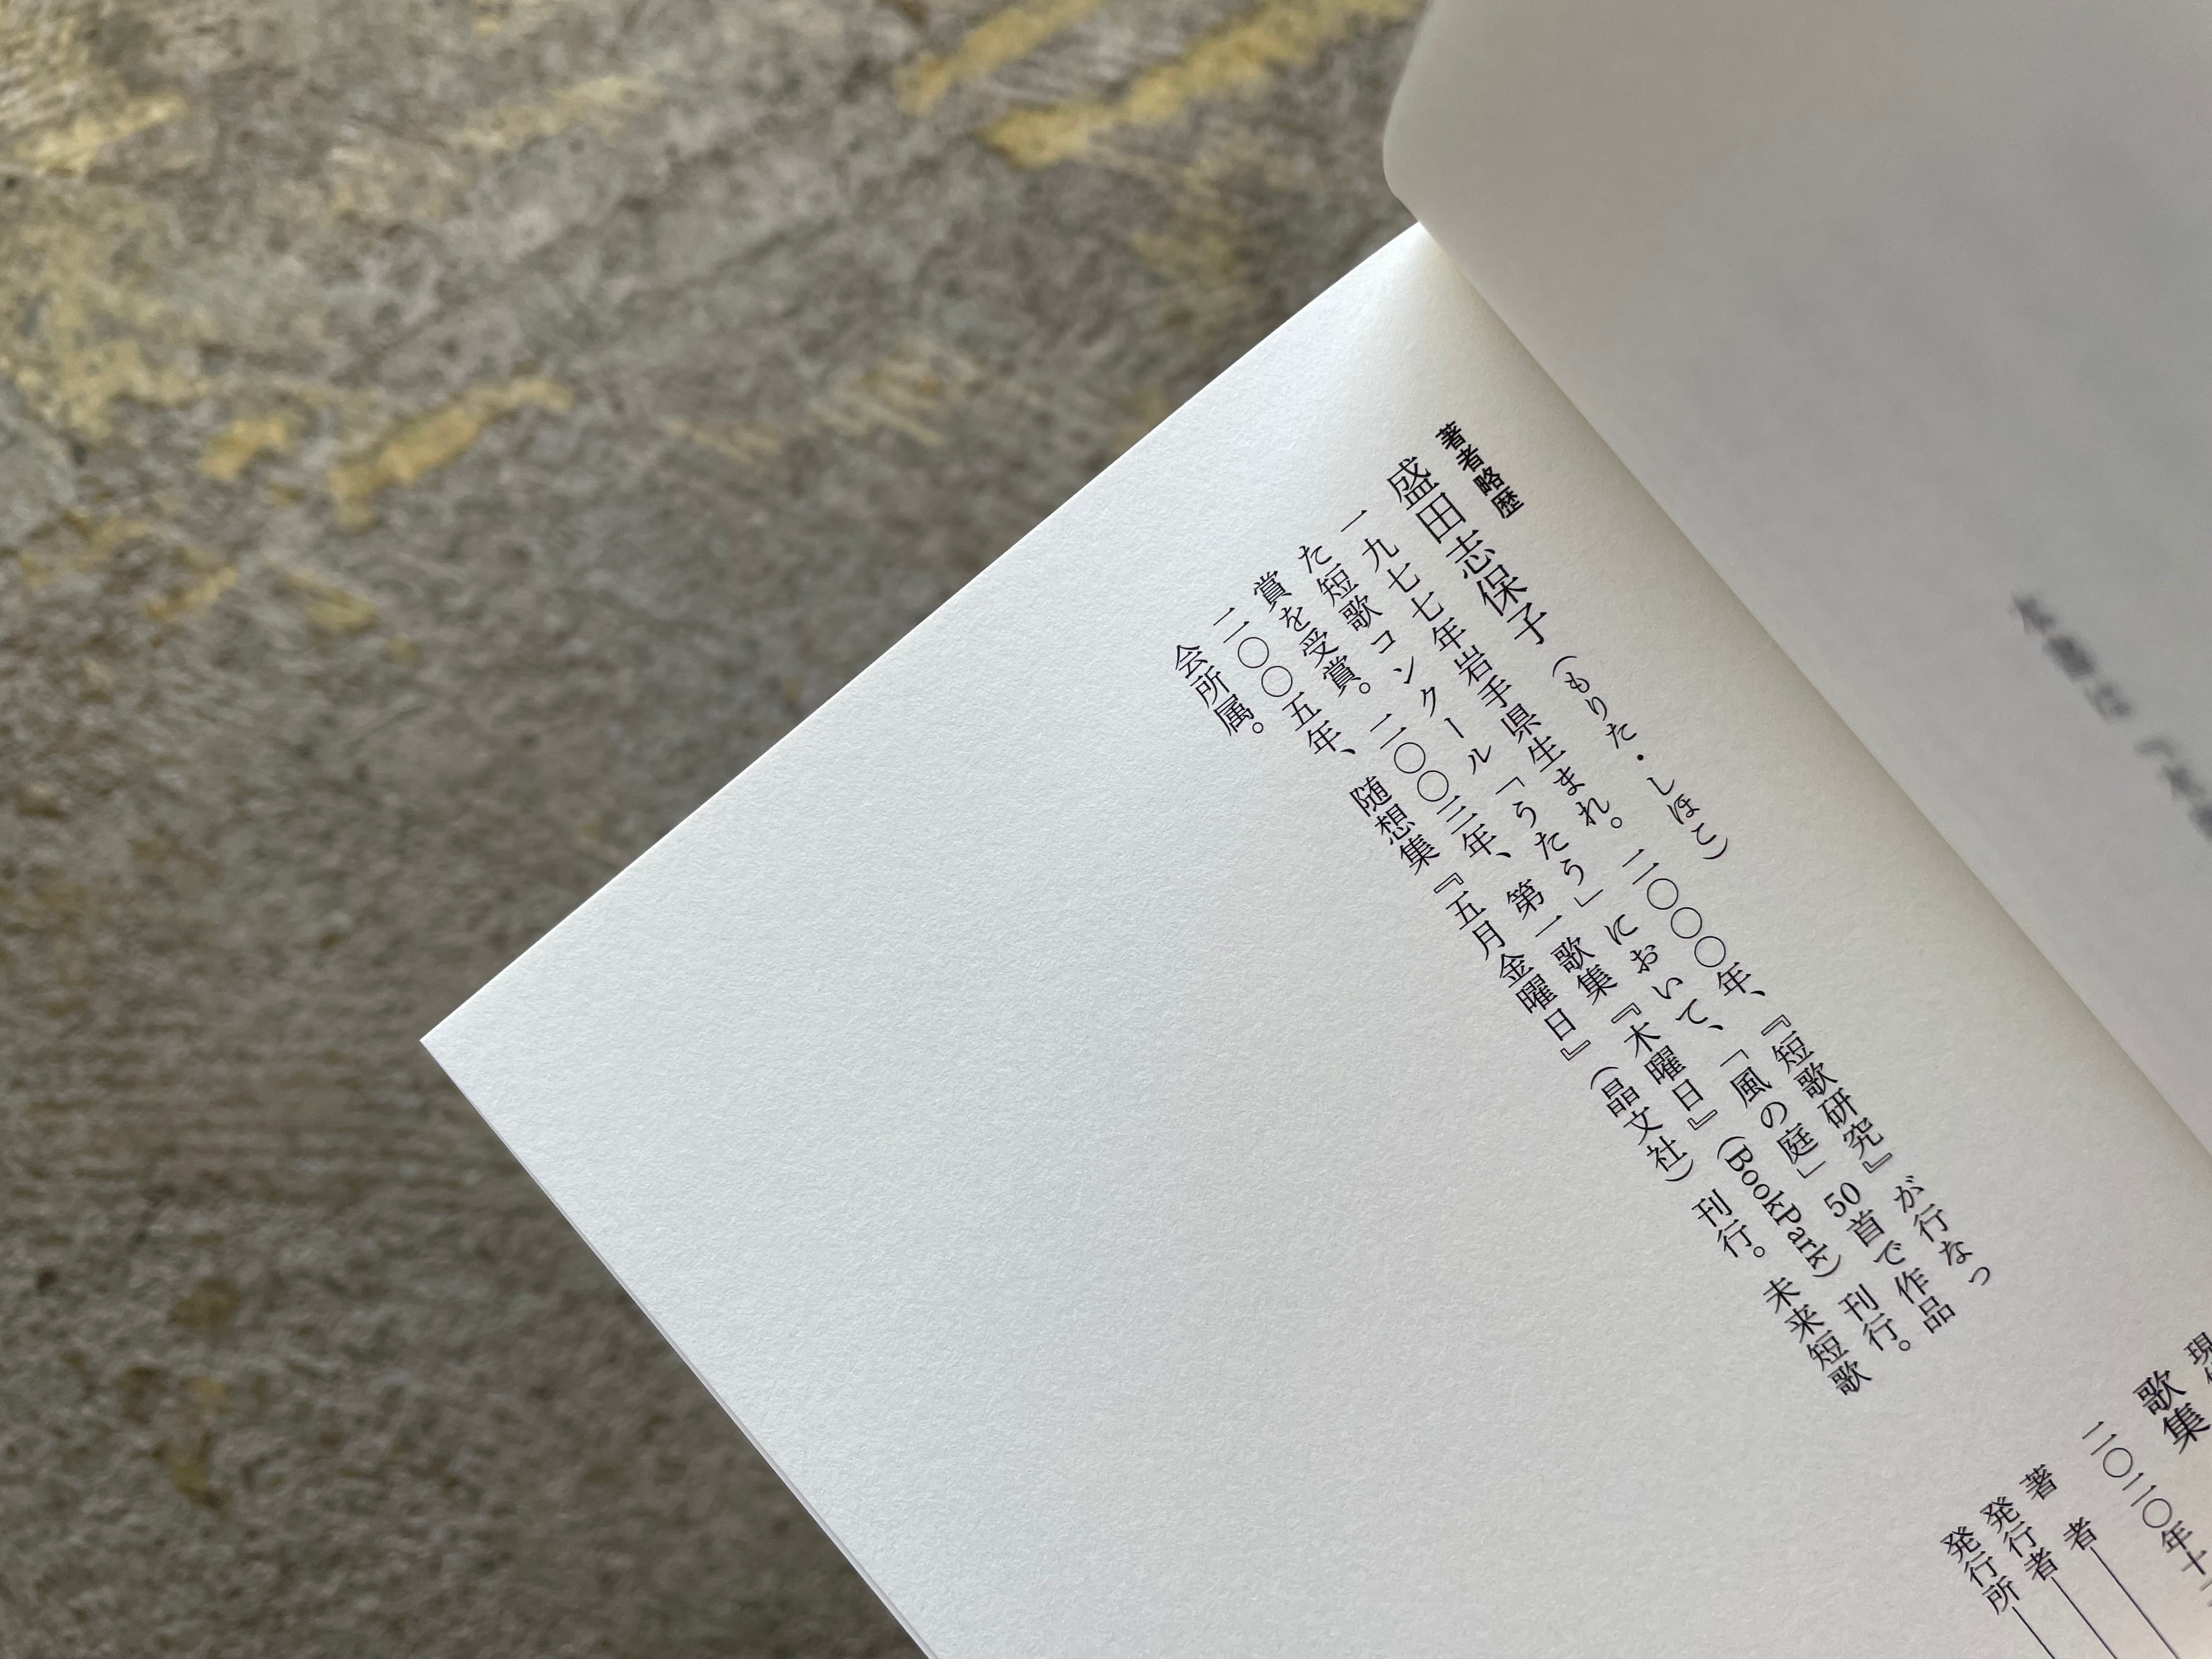 著者略歴
盛田志保子（もりた・しほこ）
一九七七年岩手県生まれ。二〇〇〇年、『短歌研究』が行なっ
た短歌コンクール「うたう」において、「風の庭」50首で作品
賞を受賞。二〇〇三年、第一歌集『木曜日』（BookPark）刊行。
二〇〇五年、随想集『五月金曜日』（晶文社）刊行。未来短歌
会所属。
歌集
二〇二〇年十
著者
発行者
発行所